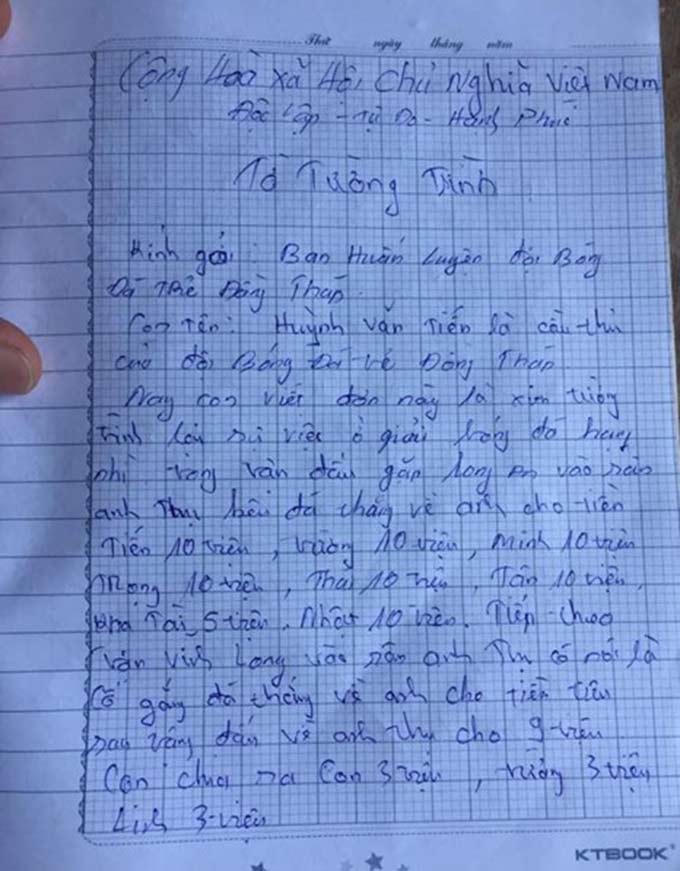 Thứ ngày tháng năm
Cộng Hoà xã Hội chủ nghĩa Việt Nam
Độc Lập - Tự Do - Hạnh Phúc
Tờ Tường Trình
Kính gởi : Ban Huấn Luyện đội Bóng
Đá Trẻ Đồng Tháp.
Con tên : Huỳnh Văn Tiến là cầu thủ
của đội Bóng Đá trẻ Đồng Tháp
Nay con viết đơn này là xin tường
trình lại sự việc ở giải bóng đá hạng
nhì trong trận đấu gặp long an vào sân
anh Thụ kêu đá thắng về anh cho tiền
Tiến 10 triệu, trường 10 triệu, Minh 10 triệu
Trọng 10 triệu, Thái 10 triệu, Tân 10 triệu,
Kha Tài 5 triệu, Nhật 10 triệu. Tiếp theo
trận Vĩnh Long vào sân anh Thụ có nói là
Cố gắng đá thắng về anh cho tiền tiêu
sau trận đấu về anh thụ cho 9 triệu
Con chia ra Con 3 triệu, trường 3 triệu
Linh 3 triệu
KTBOOK